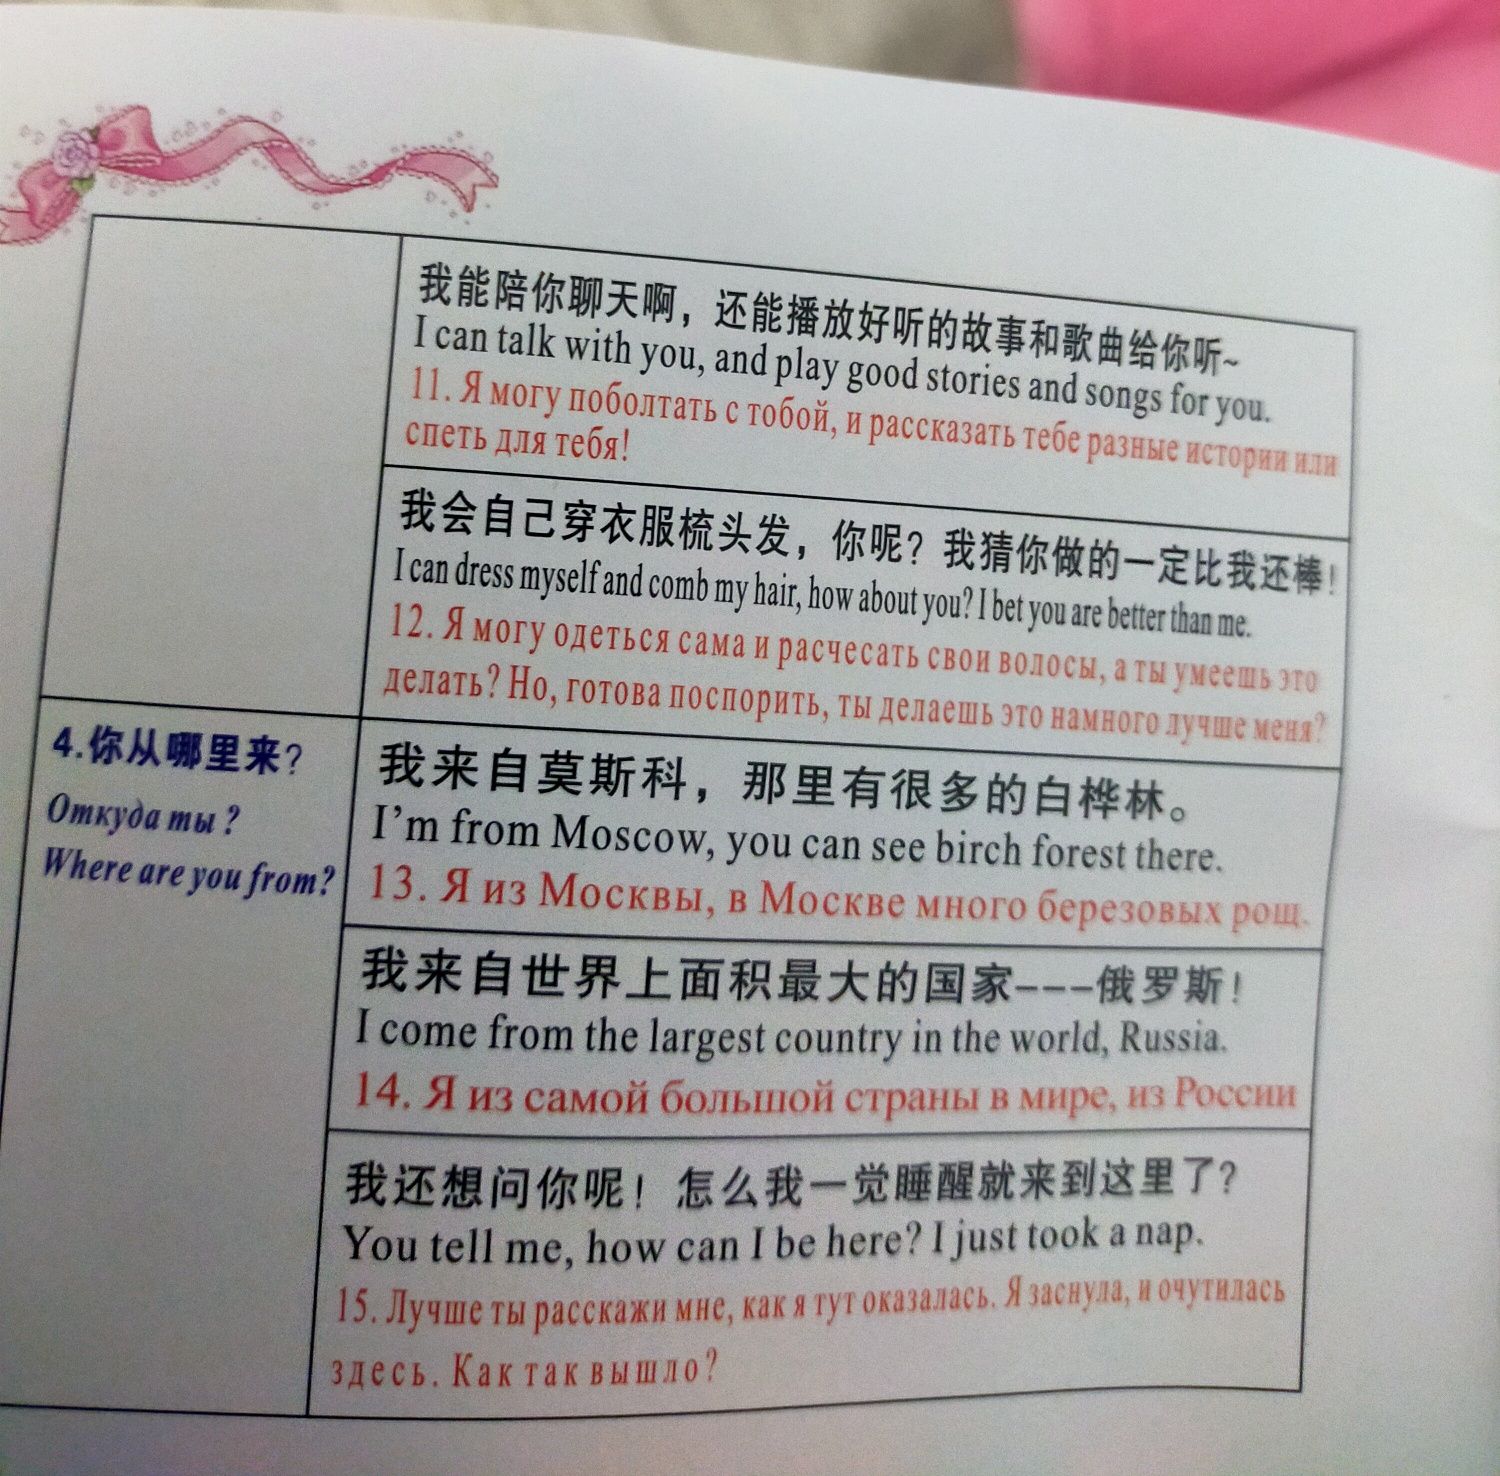 我能陪你聊天啊，还能播放好听的故事和歌曲给你听~
I can talk with you, and play good stories and songs for you.
11. Я могу поболтать с тобой, и рассказать тебе разные истории или
спеть для тебя!
我会自己穿衣服梳头发，你呢？我猜你做的一定比我还棒！
I can dress myself and comb my hair, how about you? I bet you are better than me.
12. Я могу одеться сама и расчесать свои волосы, а ты умеешь это
делать? Но, готова поспорить, ты делаешь это намного лучше меня?
4.你从哪里来？
Откуда ты ?
Where are you from?
我来自莫斯科，那里有很多的白桦林。
I'm from Moscow, you can see birch forest there.
13. Я из Москвы, в Москве много березовых рощ.
我来自世界上面积最大的国家---俄罗斯！
I come from the largest country in the world, Russia.
14. Я из самой большой страны в мире, из России
我还想问你呢！怎么我一觉睡醒就来到这里了？
You tell me, how can I be here? I just took a nap.
15. Лучше ты расскажи мне, как я тут оказалась. Я заснула, и очутилась
здесь. Как так вышло?